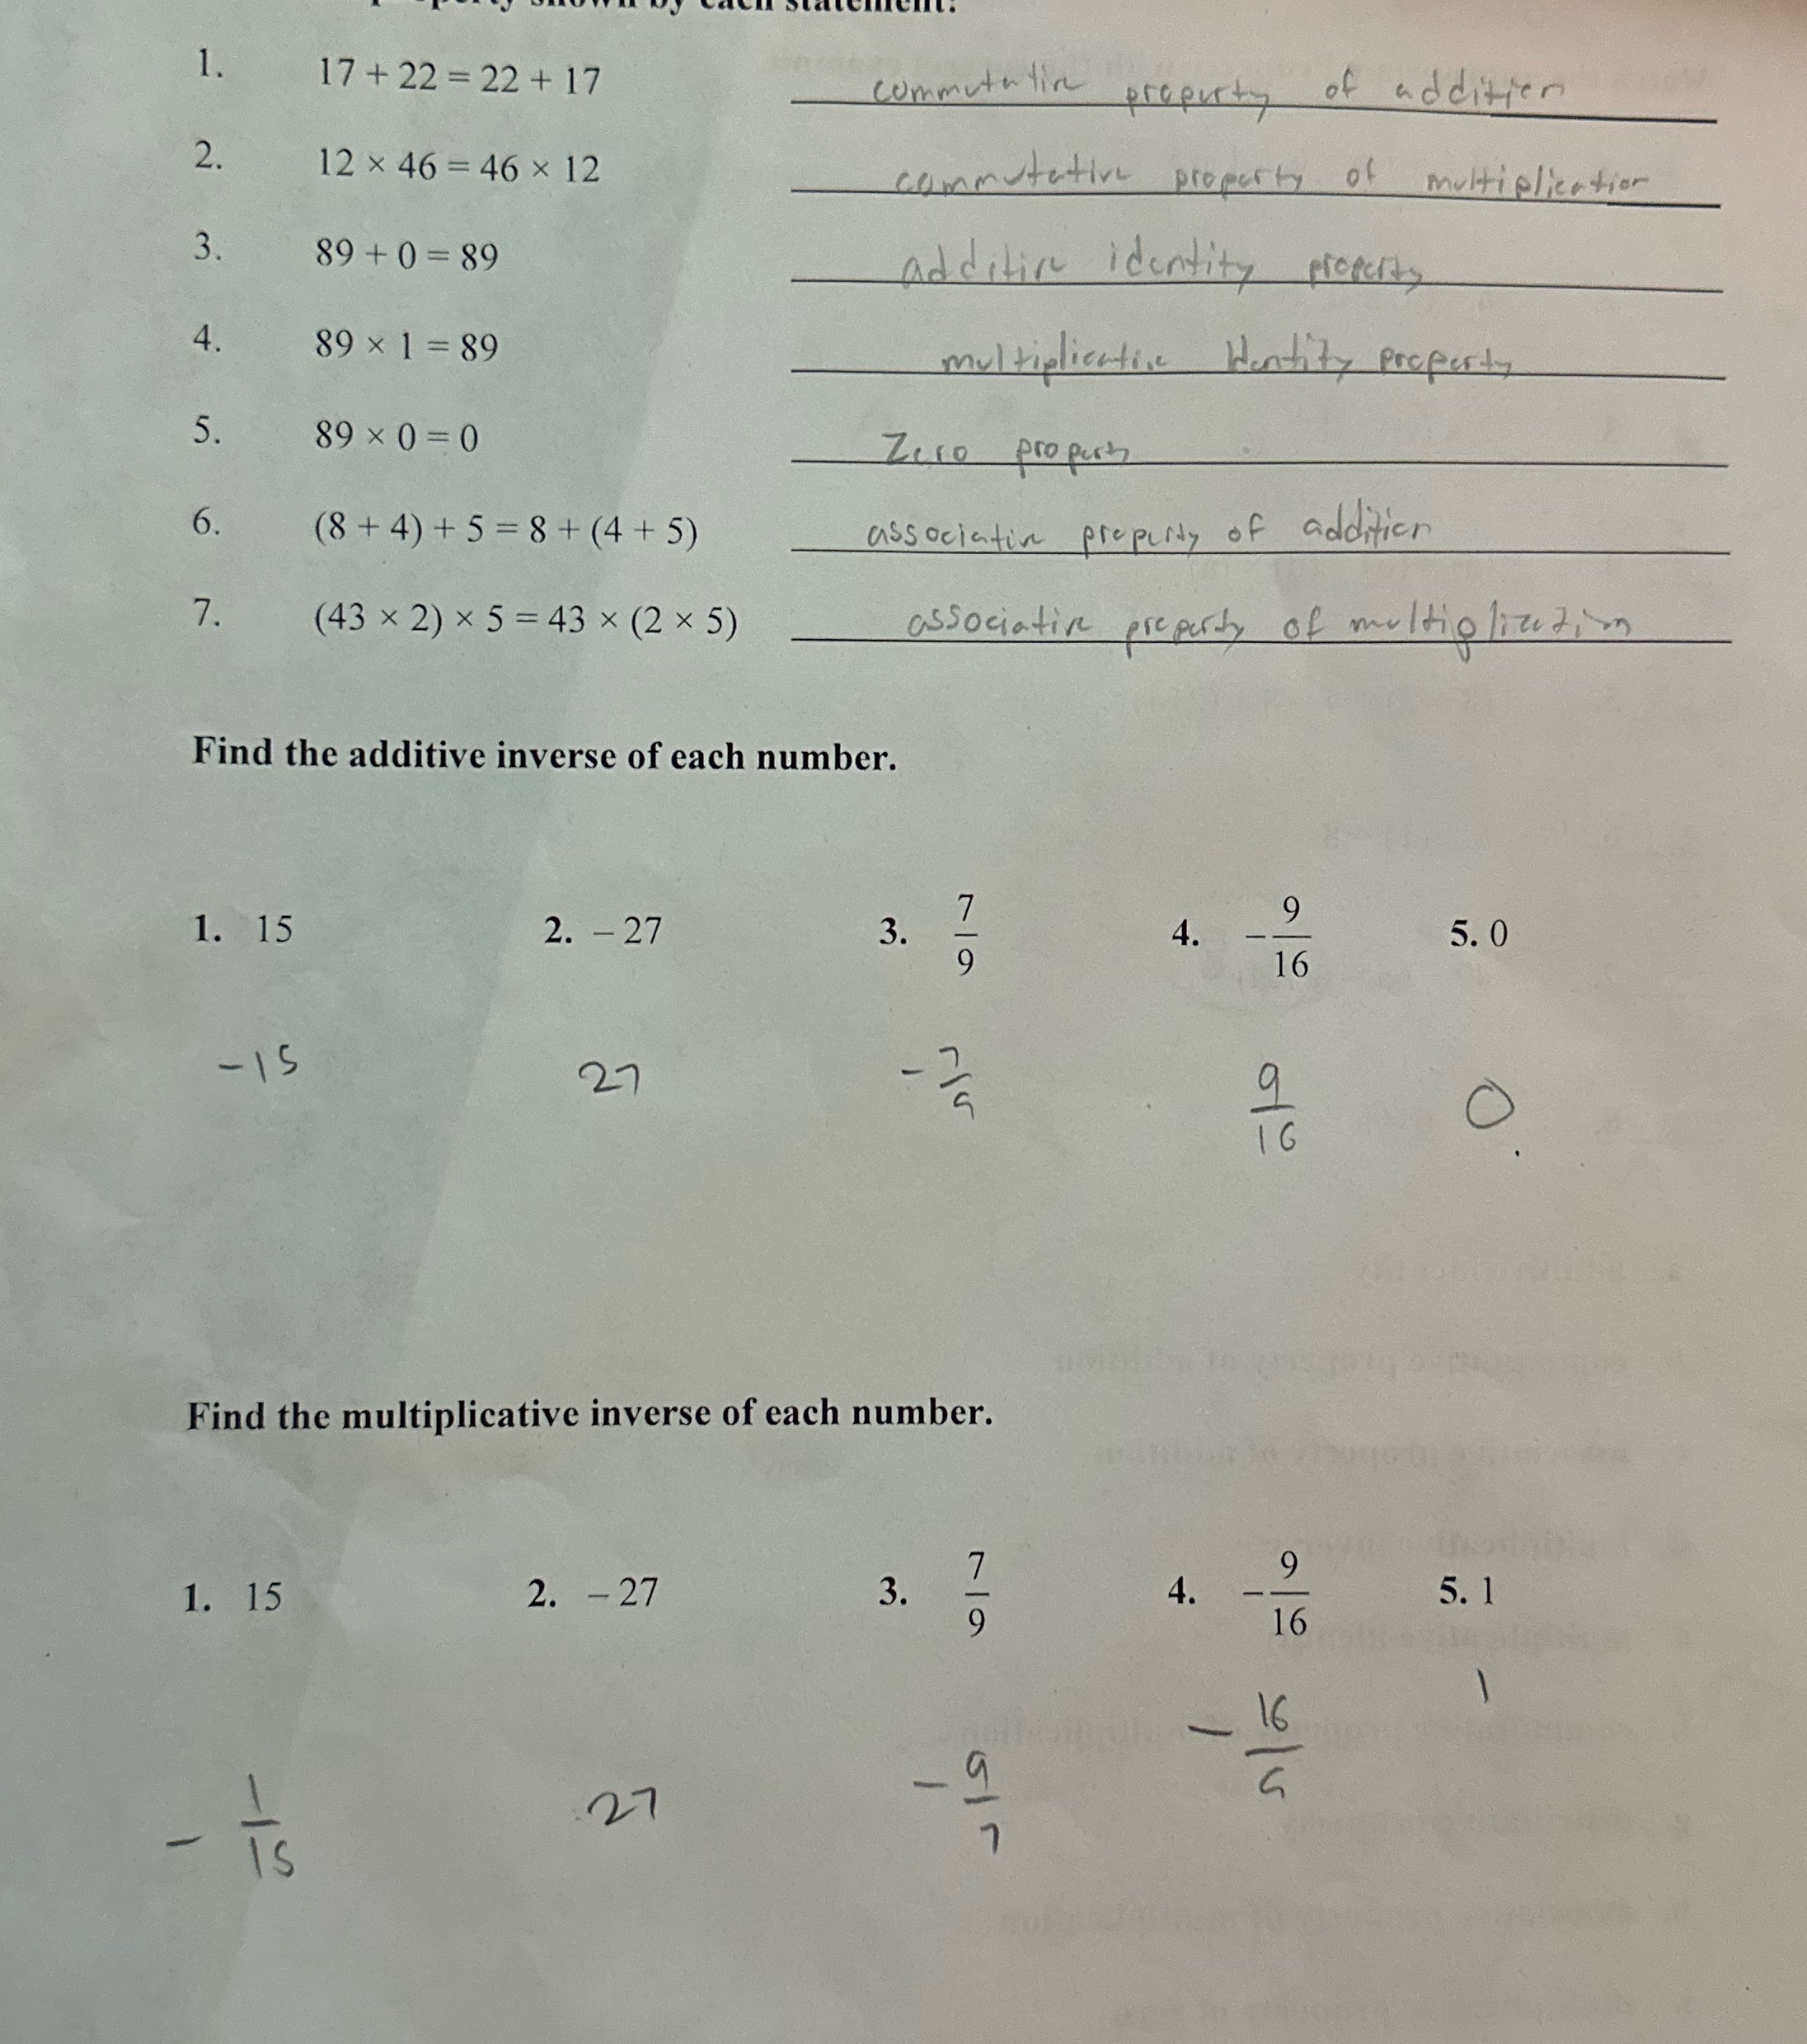 property shown by each statement.
1. 17 + 22 = 22 + 17 commutative property of addition
2. 12 × 46 = 46 × 12 commutative property of multiplication
3. 89 + 0 = 89 additive identity property
4. 89 × 1 = 89 multiplicative Identity property
5. 89 × 0 = 0 Zero property
6. (8 + 4) + 5 = 8 + (4 + 5) associative property of addition
7. (43 × 2) × 5 = 43 × (2 × 5) associative property of multiplication
Find the additive inverse of each number.
1. 15 2. – 27 3. 7/9 4. –9/16 5. 0
-15 27 -7/9 9/16 0
Find the multiplicative inverse of each number.
1. 15 2. – 27 3. 7/9 4. –9/16 5. 1
-1/15 27 -9/7 -16/9 1